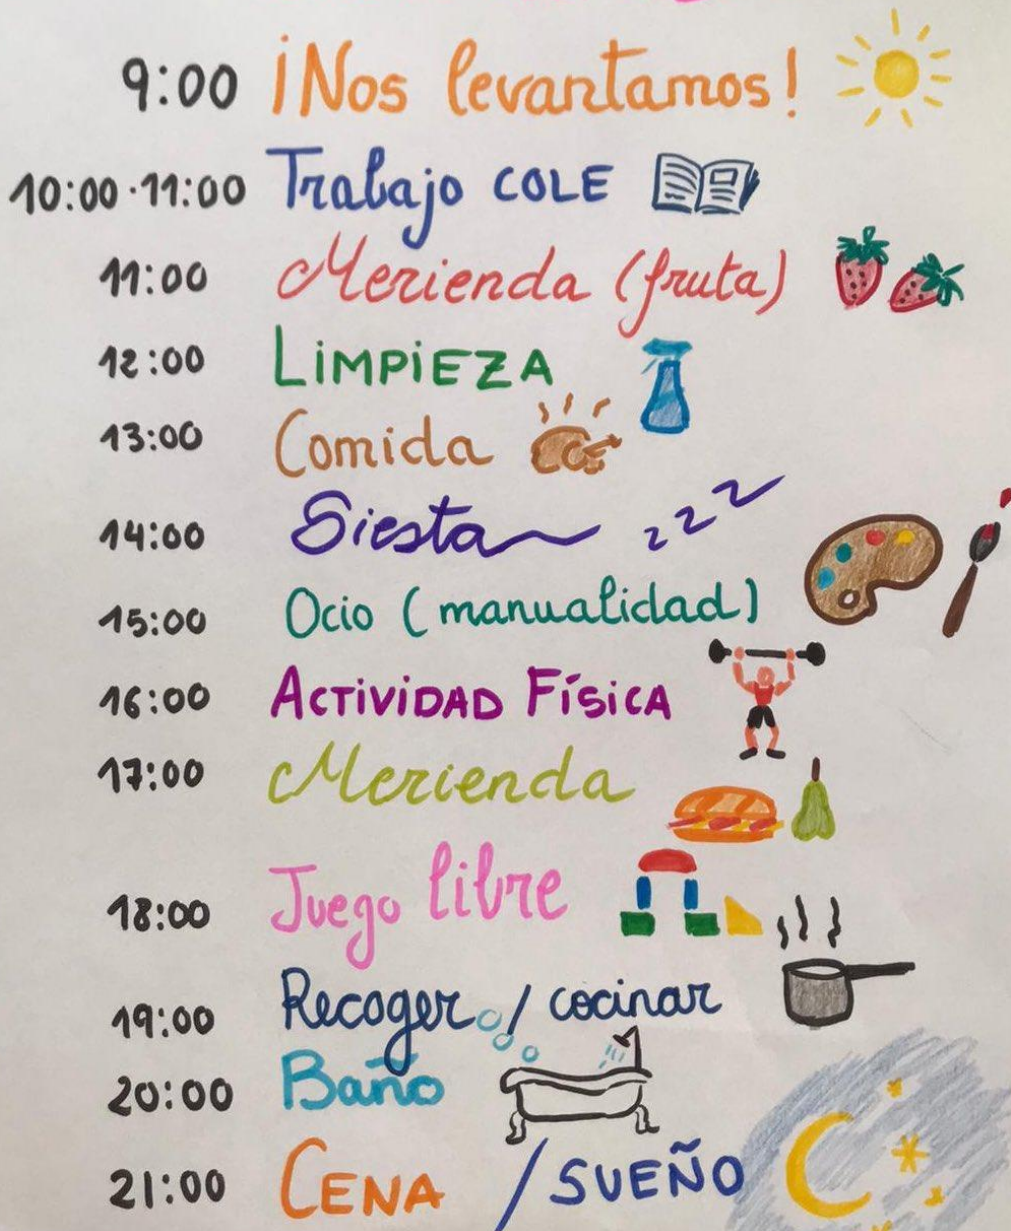 9:00 ¡Nos levantamos!
10:00·11:00 Trabajo COLE
11:00 Merienda (fruta)
12:00 LIMPIEZA
13:00 Comida
14:00 Siesta zzz
15:00 Ocio (manualidad)
16:00 ACTIVIDAD FÍSICA
17:00 Merienda
18:00 Juego libre
19:00 Recoger / cocinar
20:00 Baño
21:00 CENA / SUEÑO